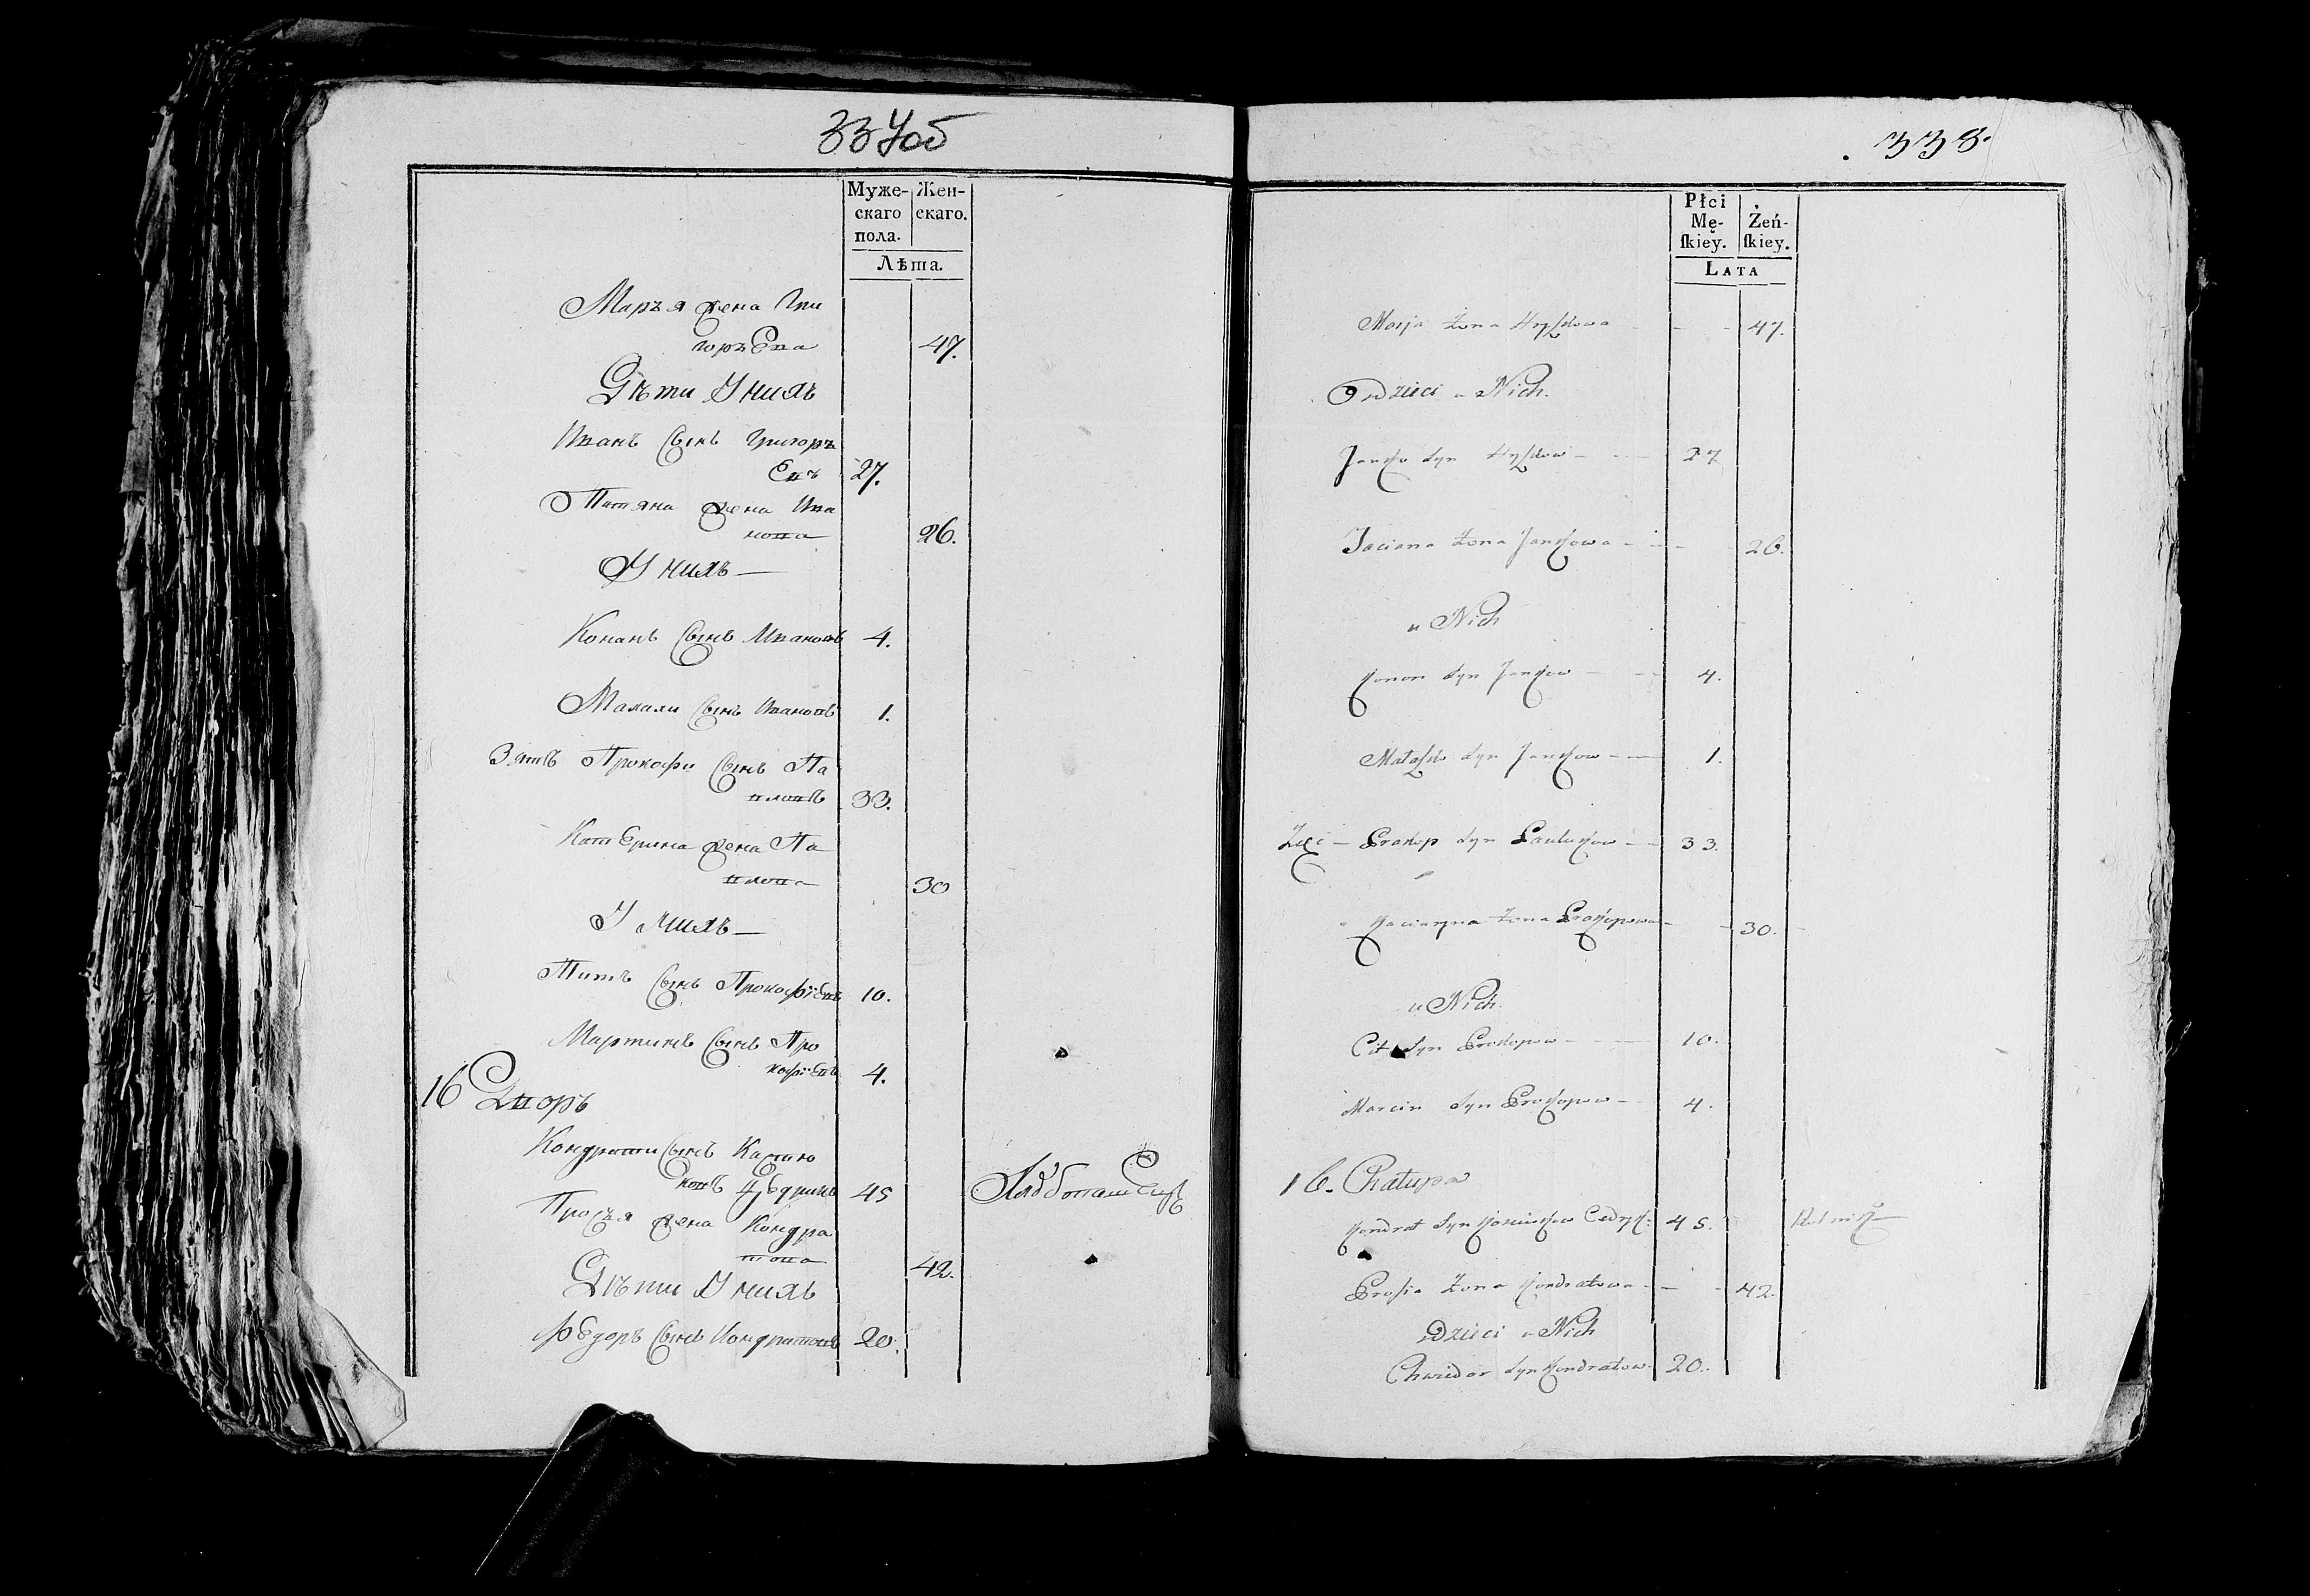 337об
Муже-
скаго
пола.
Жен-
скаго.
Лѣта.
Марья жена Гри
горьева 47.
Дѣти У нихъ
Иванъ Сынъ Григорь
евъ 27.
Татяна жена Ива
нова 26.
У нихъ —
Конанъ Сынъ Ивановъ 4.
Сынъ Ивановъ 1.
Зять Прокофи Сынъ Па
вловъ 33.
Катерина жена Па
влова 30
У нихъ —
Титъ Сынъ Прокофїевъ 10.
Мартинъ Сынъ Про
кофїевъ 4.
16 Дворъ
Кондрати Сынъ
Цедрикъ 45
Просья жена Кондра
това 42.
Дѣти У нихъ
Федоръ Сынъ Кондратовъ 20.
338.
Płci
Mę-
ſkiey.
Żeń-
ſkiey.
LATA
Marja Żona Hryſzkowa - - - 47.
Dzieci u Nich.
Janko Syn Hryſzkow - - 27
Taciana Żona Jankowa - - - 26.
u Nich
Konon Syn Jankow - - 4.
Syn Jankow - - 1.
Zięć - Prokop Syn Pawlukow - - 33.
Kacieryna Żona Prokopowa - - 30.
u Nich.
Cit Syn Prokopow - - 10.
Marcin Syn Prokopow - 4.
16. Chałupa
Kondrat Syn Cedryk: 45. Rolnik
Proſia Żona Kondratowa - - - 42.
Dzieci u Nich
Chwiedor Syn Kondratow. 20.